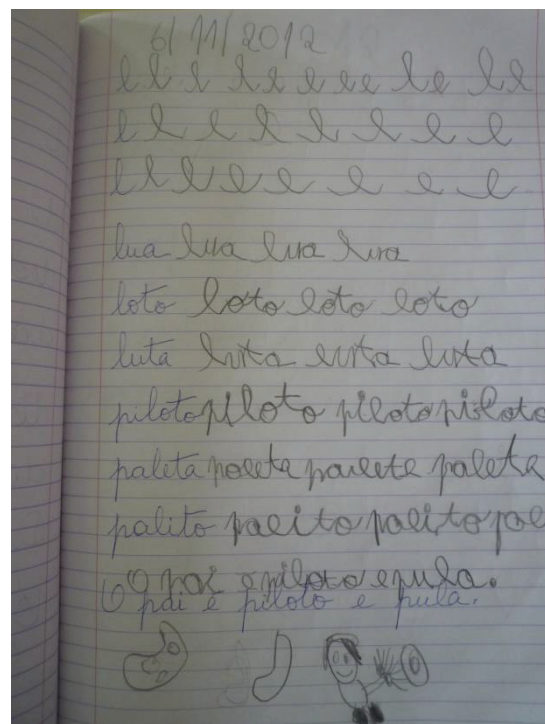 6/11/2012
l l l l l l e e e l e l l
l l e l l l l e e
l l l l e e e e l
lua lua lua lua
loto loto loto loto
luta luta luta luta
piloto piloto piloto piloto
paleta paleta paulete paleta
palito palito palito pal
O pai é piloto e pula.
O pai é piloto e pula.